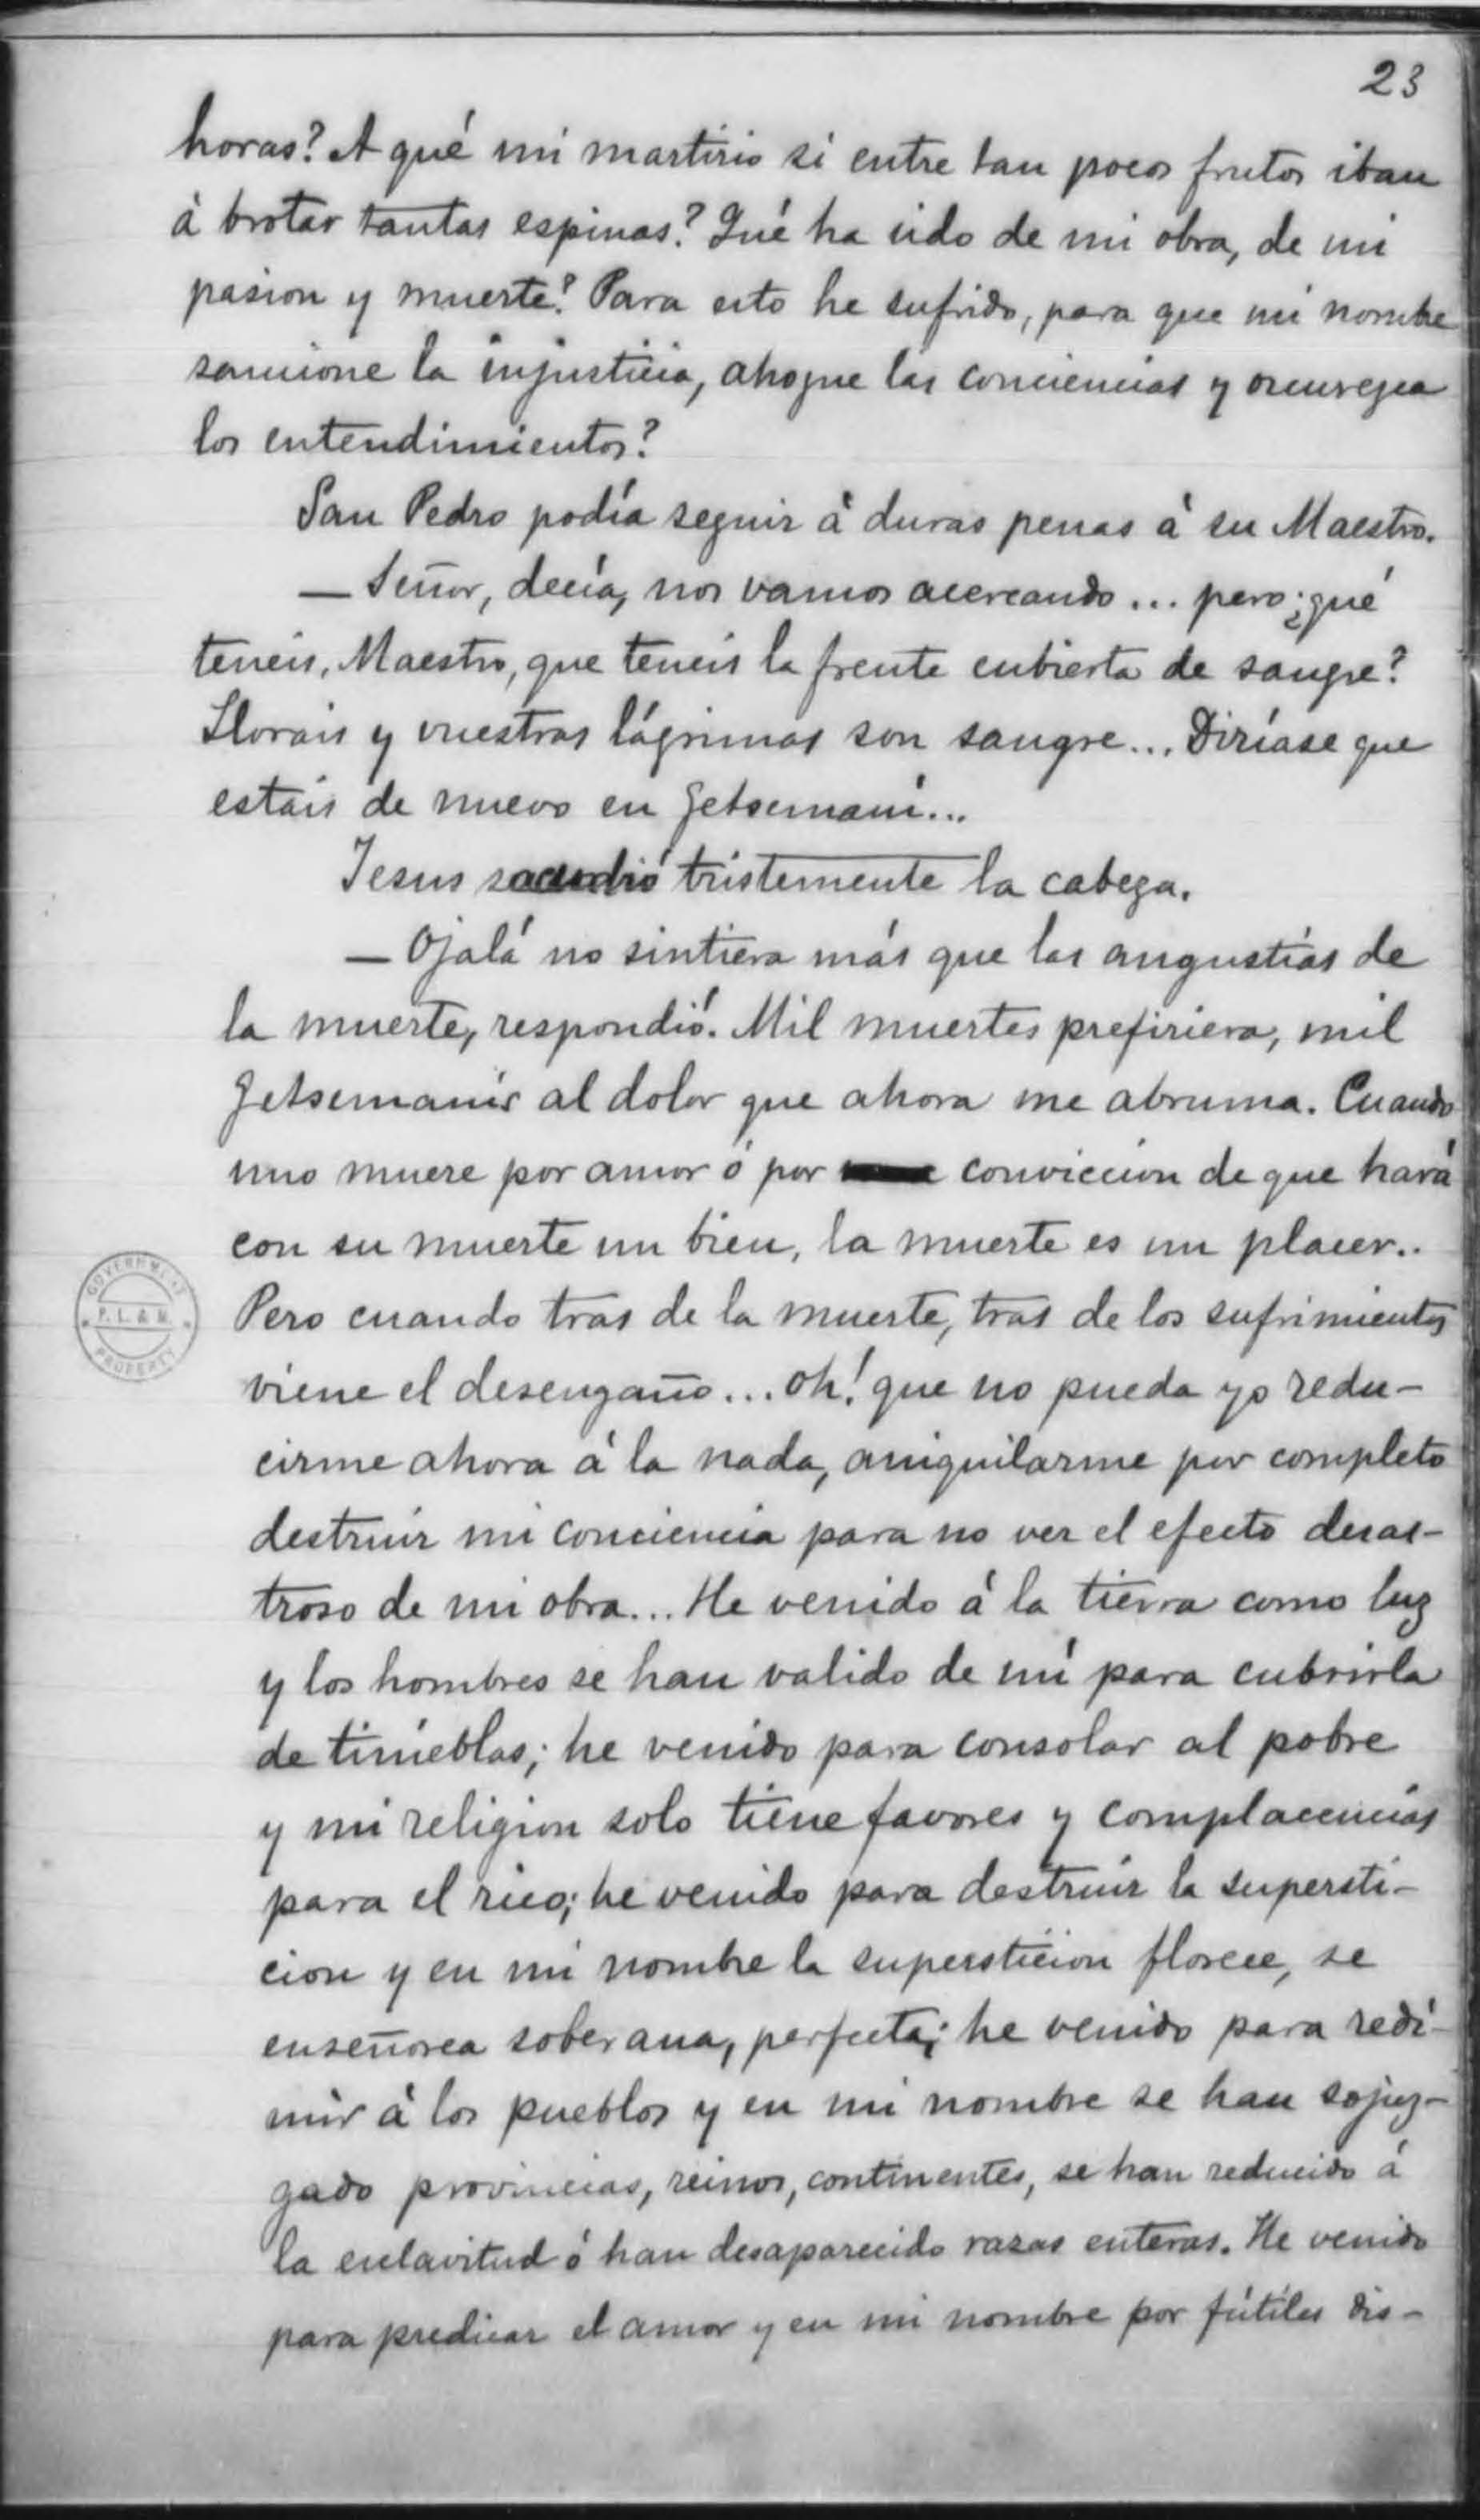 23
horas? A qué mi martirio si entre tan pocos frutos iban
á brotar tantas espinas? Qué ha sido de mi obra, de mi
pasion y muerte? Para esto he sufrido, para que mi nombre
sancione la injusticia, ahogue las conciencias y oscurezca
los entendimientos?
San Pedro podía seguir á duras penas á su Maestro.
— Señor, decía, nos vamos acercando... pero ¿qué
teneis, Maestro, que teneis la frente cubierta de sangre?
Llorais y vuestras lágrimas son sangre... Diríase que
estais de nuevo en Getsemaní...
Jesus sacudió tristemente la cabeza.
— Ojalá no sintiera más que las angustias de
la muerte, respondió. Mil muertes prefiriera, mil
Getsemanís al dolor que ahora me abruma. Cuando
uno muere por amor ó por conviccion de que hará
con su muerte un bien, la muerte es un placer..
Pero cuando tras de la muerte, tras de los sufrimientos
viene el desengaño... oh! que no pueda yo redu-
cirme ahora á la nada, aniquilarme por completo
destruir mi conciencia para no ver el efecto desas-
troso de mi obra... He venido á la tierra como luz
y los hombres se han valido de mí para cubrirla
de tinieblas; he venido para consolar al pobre
y mi religion solo tiene favores y complacencias
para el rico; he venido para destruir la supersti-
cion y en mi nombre la supersticion florece, se
enseñorea soberana, perfecta; he venido para redi-
mir á los pueblos y en mi nombre se han sojuz-
gado provincias, reinos, continentes, se han reducido á
la esclavitud ó han desaparecido razas enteras. He venido
para predicar el amor y en mi nombre por fútiles dis-
GOVERNMENT
P. L. & M.
PROPERTY